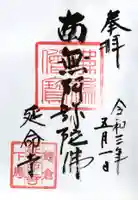 奉拝
令和三年
五月一日
南無阿弥陀佛
延命寺